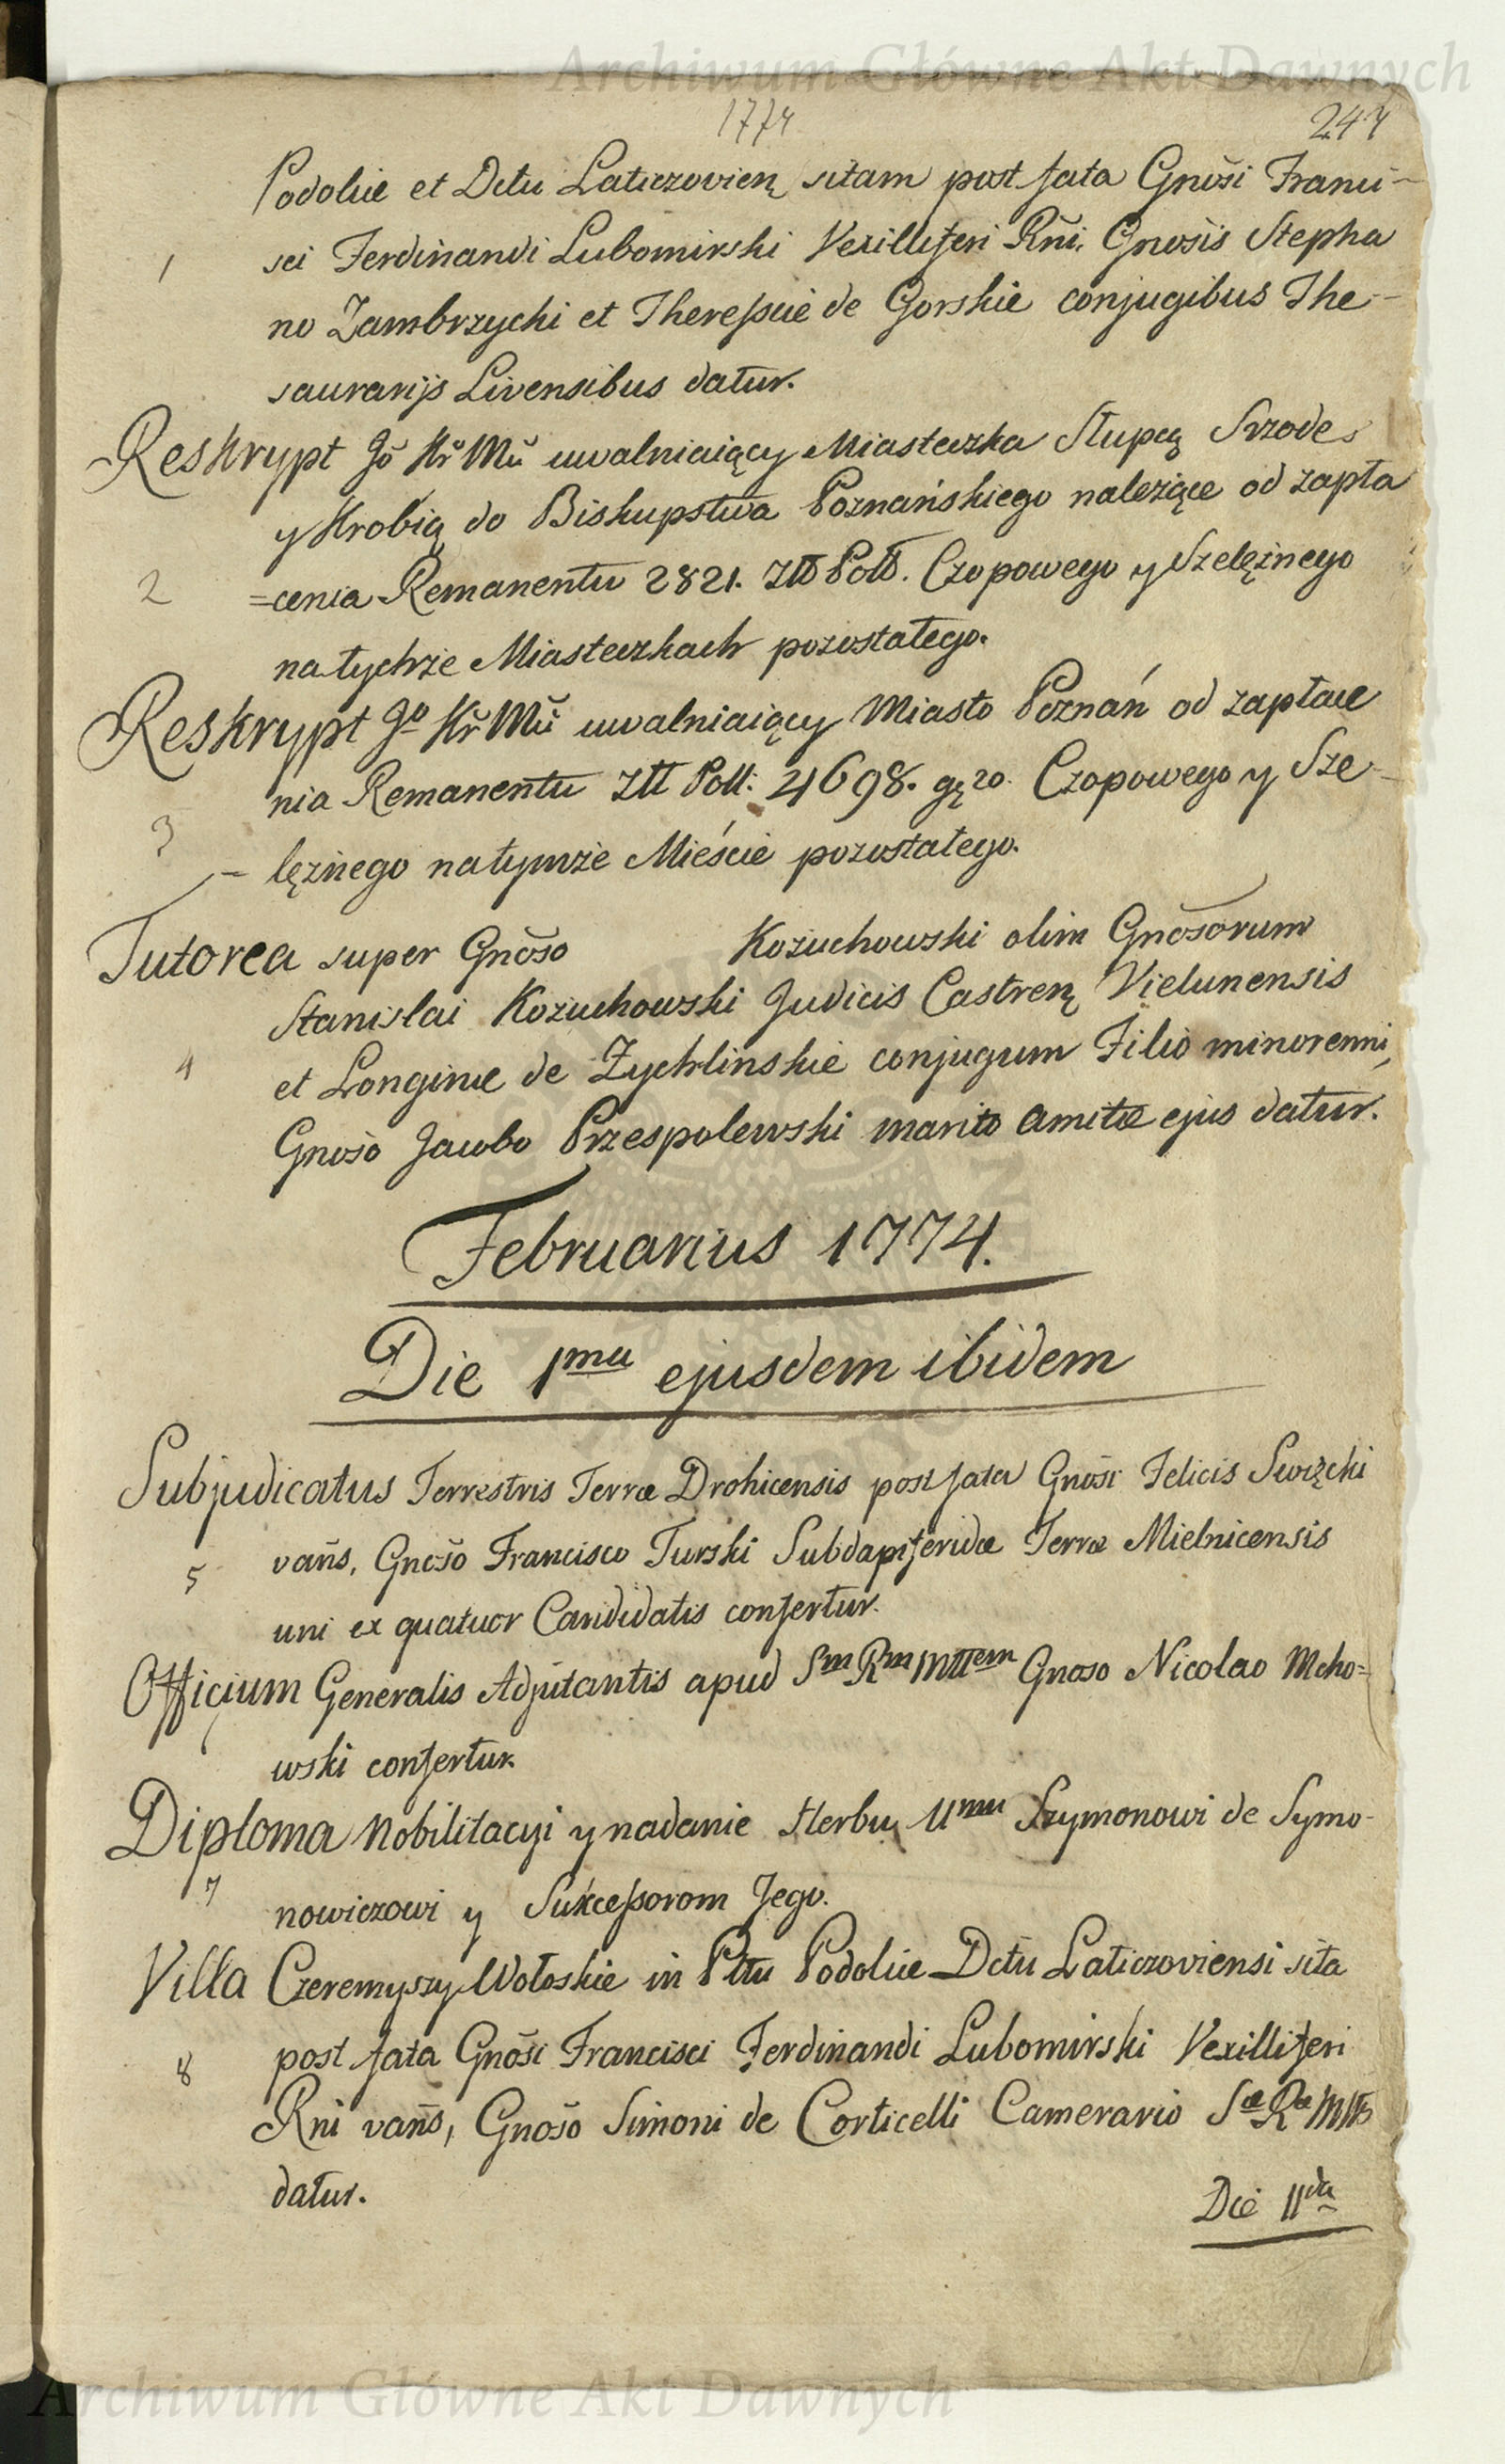 Archiwum Główne Akt Dawnych
1774
247
Podoliæ et Dctu Laticzovien sitam post fata Gnosi Franci-
1
sci Ferdinandi Lubomirski Vexilliferi Rni, Gnosis Stepha
no Zambrzycki et Theressiæ de Gorskie conjugibus The-
saurarijs Livensibus datur.
Reskrypt Jo Kr Mci uwalniaiący Miasteczka Słupcą Srzode
y Krobią do Biskupstwa Poznańskiego należące od zapła
2
=cenia Remanentu 2821. Złł Poll. Czopowego y Szelężnego
na tychże Miasteczkach pozostałego.
Reskrypt Jo Kr Mci uwalniaiący Miasto Poznań od zapłace
nia Remanentu Złł Poll: 4698. gr 20. Czopowego y Sze-
3
lężnego na tymże Mieście pozostałego.
Tutorea super Gnoso Kożuchowski olim Gnosorum
Stanislai Kożuchowski Judicis Castren Vielunensis
4
et Longinæ de Zychlinskie conjugum Filio minorenni,
Gnoso Jacobo Przespolewski marito amitæ ejus datur.
Februarius 1774.
Die 1ma ejusdem ibidem
Subjudicatus Terrestris Terræ Drohicensis post fata Gnosi Felicis Swiżcki
5
vans, Gnoso Francisco Turski Subdapiferidæ Terræ Mielnicensis
uni ex quatuor Candidatis confertur.
Officium Generalis Adjutantis apud Sm Rm Mttem Gnoso Nicolao Mcho=
6
wski confertur.
Diploma Nobilitacyi y nadanie Herbu Umu Szymonowi de Symo-
7
nowiczowi y Sukcessorom Jego.
Villa Czeremyszy Wołoskie in Pttu Podoliæ Dctu Laticzoviensi sita
8
post fata Gnosi Francisci Ferdinandi Lubomirski Vexilliferi
Rni vans, Gnoso Simoni de Corticelli Camerario Sæ Ræ Mttis
datur.
Die 11da
Archiwum Główne Akt Dawnych